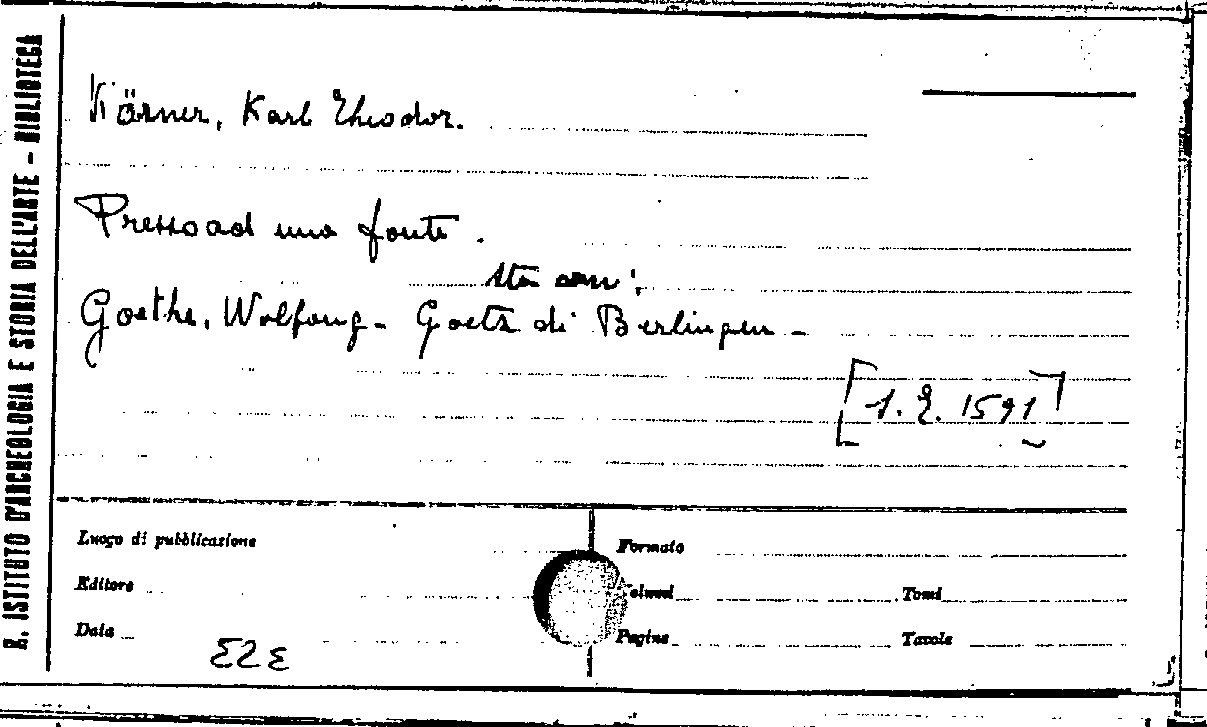 R. ISTITUTO D'ARCHEOLOGIA E STORIA DELL'ARTE - BIBLIOTECA
Körner, Karl Theodor.
Presso ad una fonte.
Sta con:
Goethe, Wolfang - Goetz di Berlingen -
[1. E. 1591]
Luogo di pubblicazione
Formato
Editore
Volumi
Tomi
Data
Pagine
Tavole